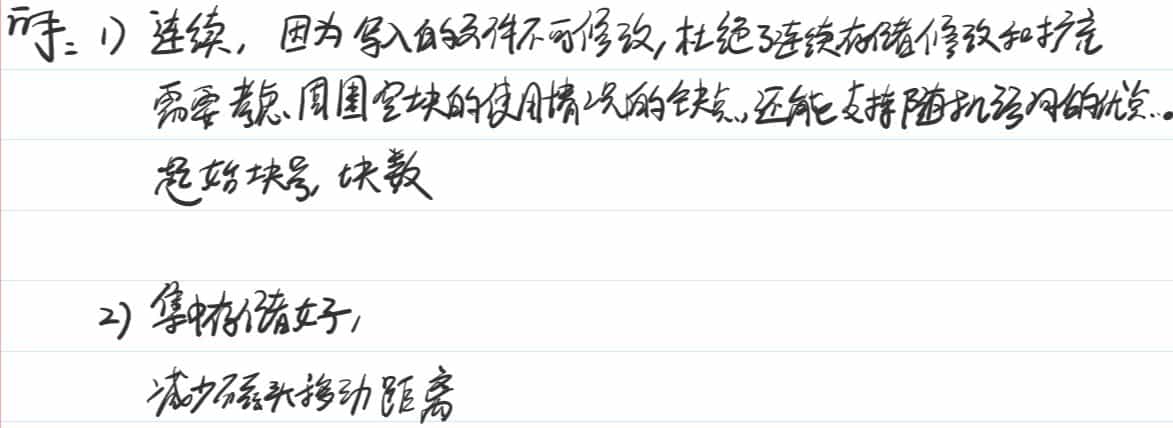 解: 1) 连续, 因为写入的文件不可修改, 杜绝了连续存储修改和扩充
需要考虑周围空块的使用情况的缺点, 还能支持随机访问的优点...
起始块号, 块数
2) 集中存储好,
减少磁头移动距离